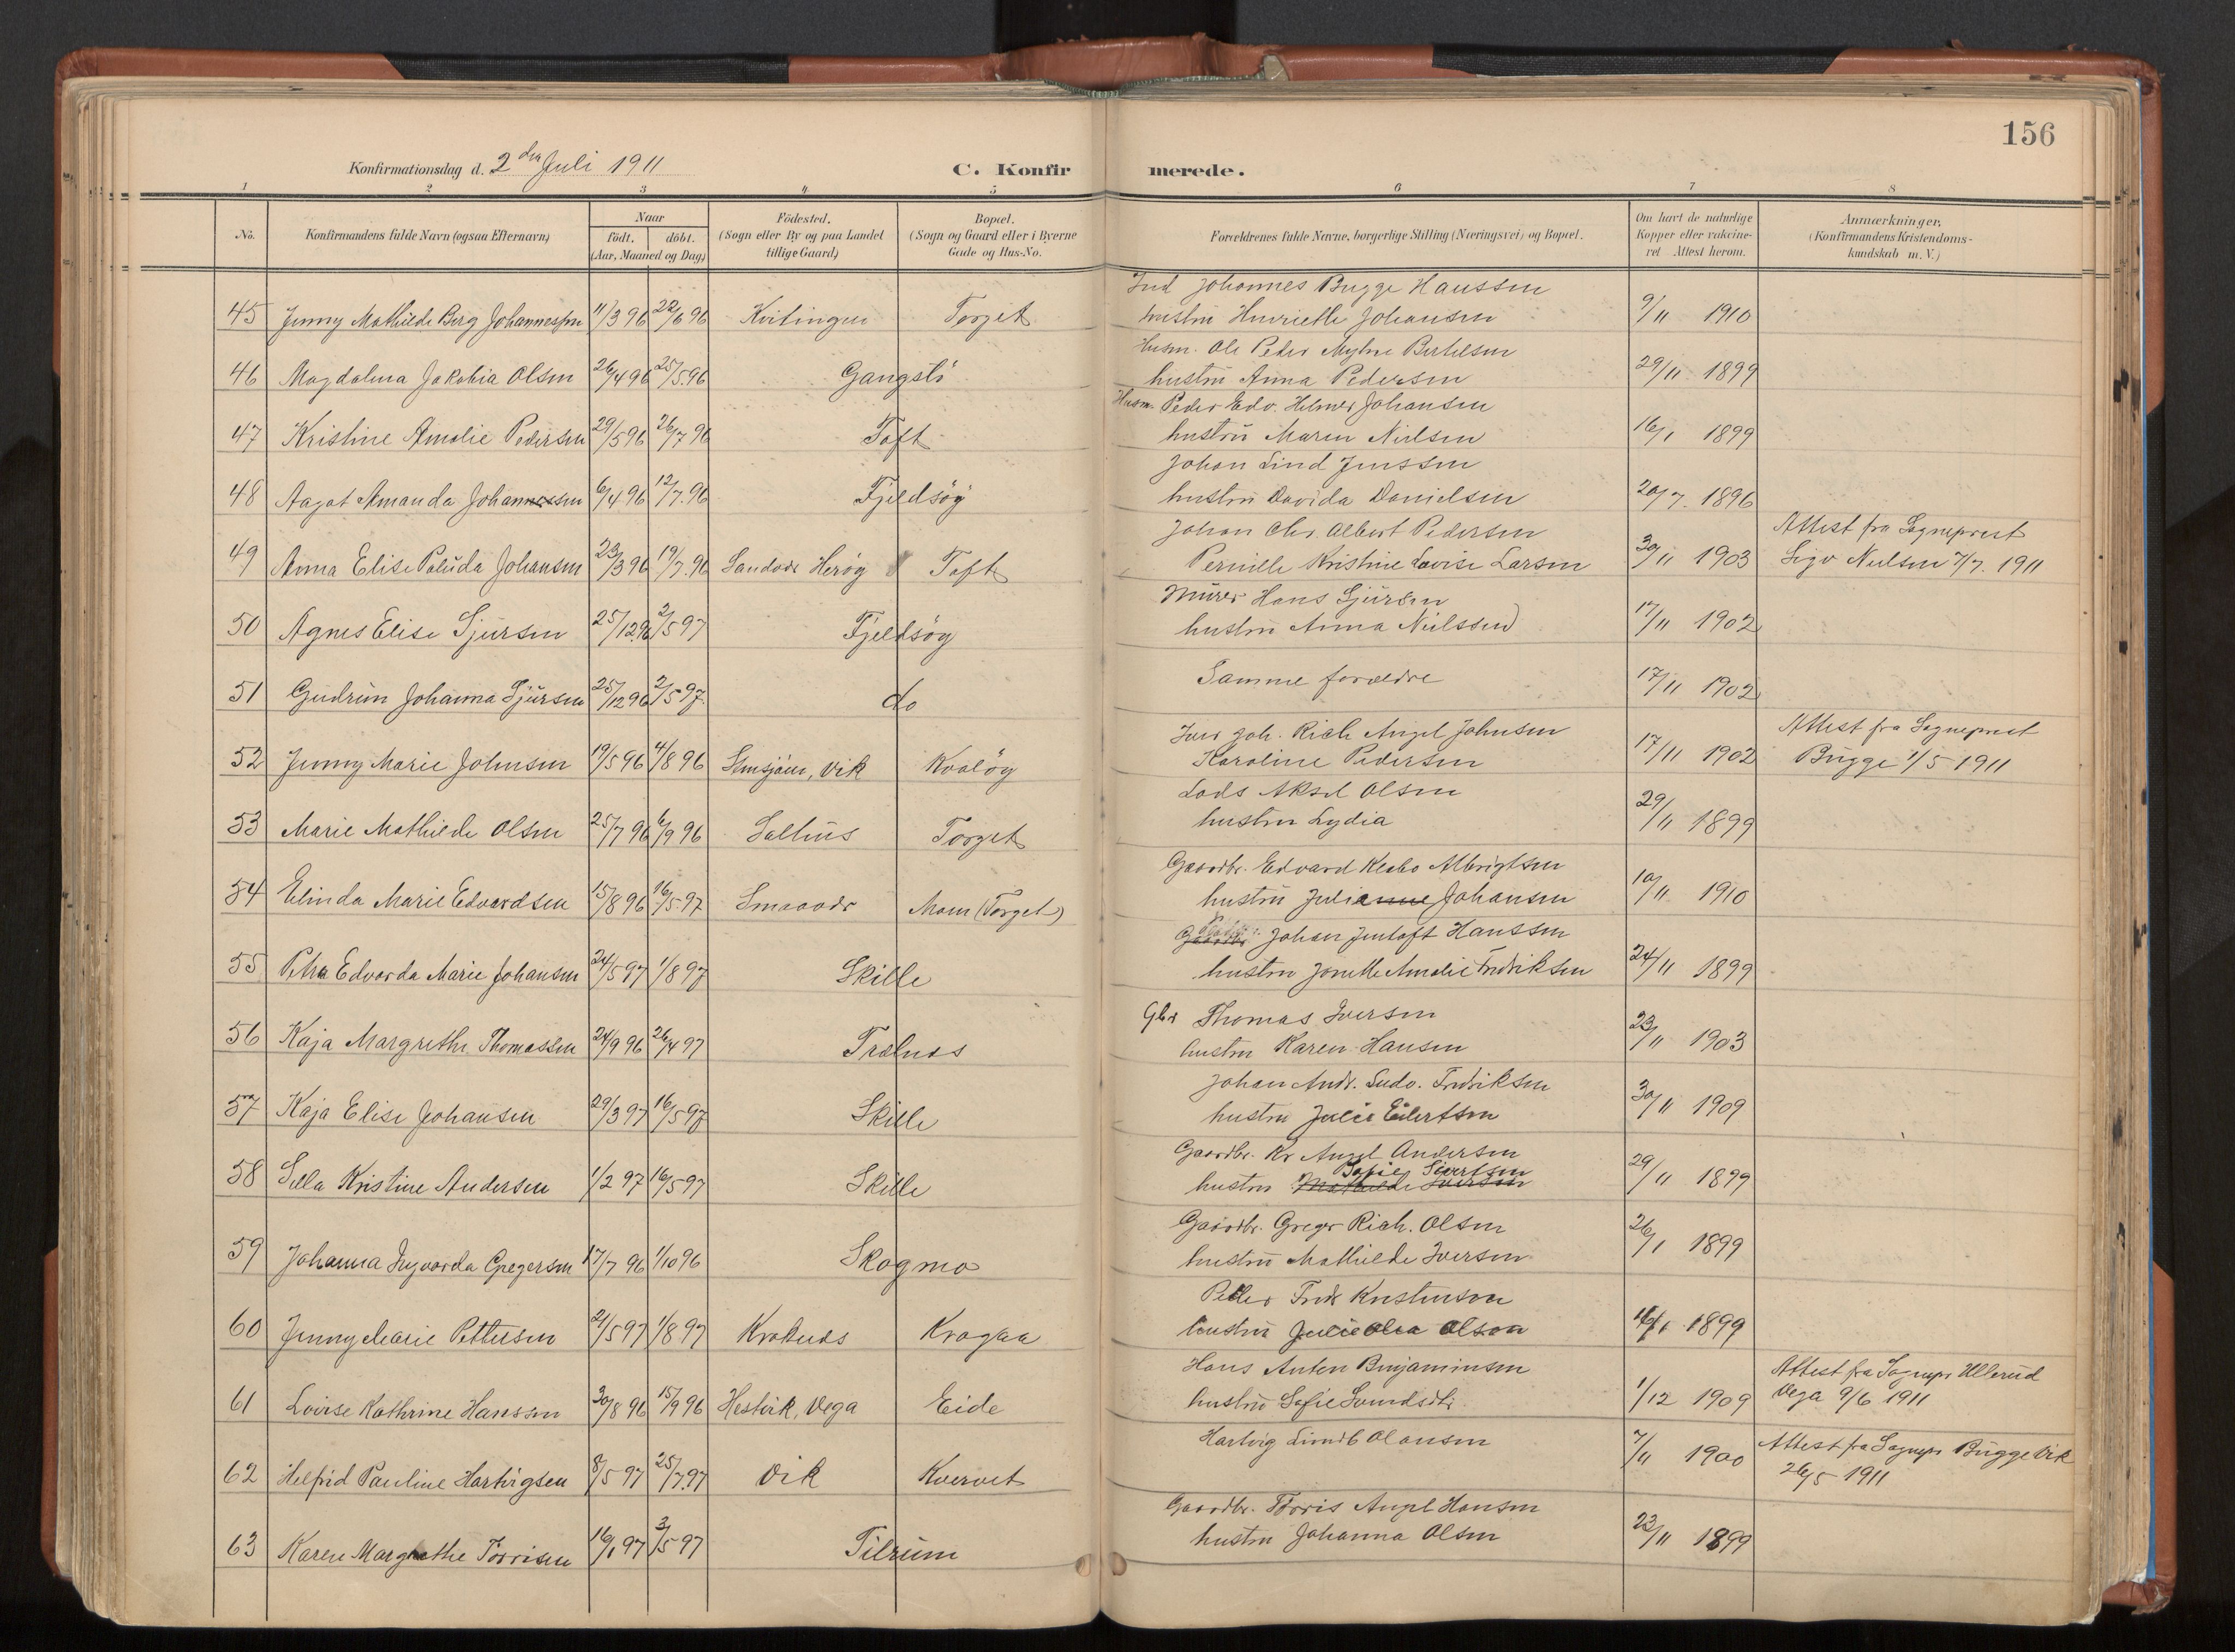 156
Konfirmationsdag d. 2den Juli 1911 C. Konfirmerede.
1 2 3 4 5 6 7 8
No. Konfirmandens fulde Navn (ogsaa Efternavn) Naar födt. döbt. (Aar, Maaned og Dag) Födested. (Sogn eller By og paa Landet tillige Gaard) Bopæl. (Sogn og Gaard eller i Byerne Gade og Hus-No. Forældrenes fulde Navne, borgerlige Stilling (Næringsvei) og Bopæl. Om havt de naturlige Kopper eller vakcineret Attest herom. Anmærkninger, (Konfirmandens Kristendomskundskab m. V.)
Ind Johannes Bugge Hanssen
45 Jenny Mathilde Berg Johannessen 11/3 96 22/6 96 Kvitingen Torget hustru Henriette Johansen 9/11 1910
Husm. Ole Peder Myhre Bertelsen
46 Magdalena Jakobia Olsen 26/4 96 25/5 96 Gangstö hustru Anna Pedersen 29/11 1899
Husm. Peder Edv. Helmer Johansen
47 Kristine Amalie Pedersen 29/5 96 26/7 96 Toft hustru Maren Nielsen 16/1 1899
Johan Lind Jenssen
48 Aagot Amanda Johannessen 6/4 96 12/7 96 Fjeldsöy hustru Davida Danielsen 20/7 1896
Johan Chr. Albert Pedersen Attest fra Sogneprest
49 Anna Elise Paluda Johansen 23/3 96 19/7 96 Herøy Toft Pernille Kristine Lovise Larsen 30/11 1903 Sigv Nielsen 7/7 1911
Murer Hans Sjursen
50 Agnes Elise Sjursen 25/12 96 2/5 97 Fjeldsöy hustru Anna Nielssen 17/11 1902
51 Gudrun Johanna Sjursen 25/12 96 2/5 97 do Samme forældre 17/11 1902
Joh. Rich Angel Johnsen Attest fra Sogneprest
52 Jenny Marie Johnsen 19/5 96 4/8 96 Vik Kvalöy Karoline Pedersen 17/11 1902 Bugge 1/5 1911
Lods Aksel Olsen
53 Marie Mathilde Olsen 25/7 96 6/9 96 Salhus Torget hustru Lydia 29/11 1899
Gaardbr. Edvard Albrigtsen
54 Elinda Marie Edvardsen 15/8 96 16/5 97 Mom (Torget) hustru Julianne Johansen 10/11 1910
Gaardbr. Johan Jentoft Hanssen
55 Petra Edvarda Marie Johansen 24/5 97 1/8 97 Skille hustru Jonette Amalie Fredriksen 24/11 1899
Gbr Thomas Iversen
56 Kaja Margrethe Thomassen 24/9 96 26/4 97 Trælnes hustru Karen Hansen 23/11 1903
Johan Andr. Ludv. Fredriksen
57 Kaja Elise Johansen 29/3 97 16/5 97 Skille hustru Julie Eilertsen 30/11 1909
Gaardbr. Kr Angel Andersen
Sofie Sivertsen
58 Sella Kristine Andersen 1/2 97 16/5 97 Skille hustru Mathilde Iversen 29/11 1899
Gaardbr. Greger Rich. Olsen
59 Johanna Ingvarda Gregersen 17/7 96 1/10 96 Skogmo hustru Mathilde Iversen 26/1 1899
Petter Fredr Kristensen
60 Jenny Marie Pettersen 21/5 97 1/8 97 Kraknes Kragaa hustru Julie Olea Olsen 16/1 1899
Hans Anton Benjaminsen Attest fra Sognepr Ullerud
61 Lovise Kathrine Hanssen 30/8 96 15/9 96 Hestvik, Vega Eide hustru Sofie Svendsdtr. 1/12 1909 Vega 9/6 1911
Hartvig Olausen
62 Helfrid Pauline Hartvigsen 8/5 97 25/7 97 Vik Kvervet 7/11 1900 Attest fra Sognepr Bugge Vik
26/5 1911
Gaardbr. Torris Angel Hansen
63 Karen Margrethe Torrisen 16/1 97 3/5 97 Tilrum hustru Johanna Olsen 23/11 1899